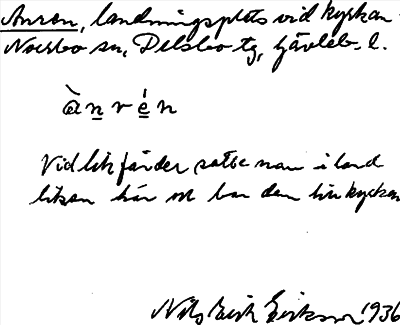 Anren, landningsplats vid kyrkan
Norrbo sn, Delsbo tg, Gävleb. l.
ànrén
Vid likfärder satte man i land
liken här och bar dem till kyrkan
Nils Erik Eriksson 1936